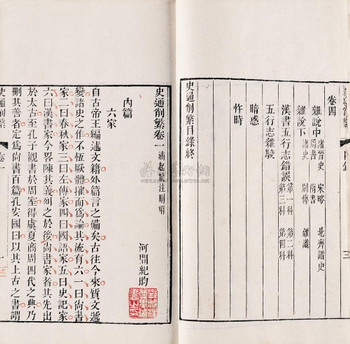 卷四
雜說中
雜說下 諸史 別傳 雜識
漢書五行志錯誤 第一科 第二科 第三科 第四科
五行志雜駁
暗惑
忤時
史通削繁目錄終
史通削繁卷一
河間紀昀
內篇
六家
自古帝王編述文籍外篇言之備矣古往今來質文遞
變諸史之作不恆厥體搉而為論其流有六一曰尚書
家二曰春秋家三曰左傳家四曰國語家五曰史記家
六曰漢書家今略陳其義列之於後尚書家者其先出
於太古至孔子觀書於周室得虞夏商周四代之典乃
刪其善者定為尚書百篇孔安國曰以其上古之書謂
史通削繁 卷一 一